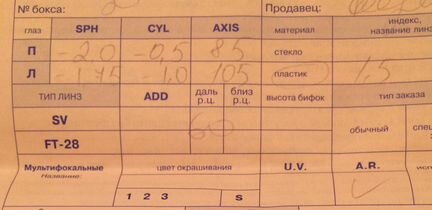 № бокса: Продавец:
глаз SPH CYL AXIS материал индекс, название линз
П -2,0 -0,5 85 стекло
Л -1,75 1,0 105 пластик 1,5
ТИП ЛИНЗ ADD даль р.ц. близ р.ц. высота бифок тип заказа
SV 60 обычный
FT-28
Мультифокальные цвет окрашивания U.V. A.R.
Название:
1 2 3 S